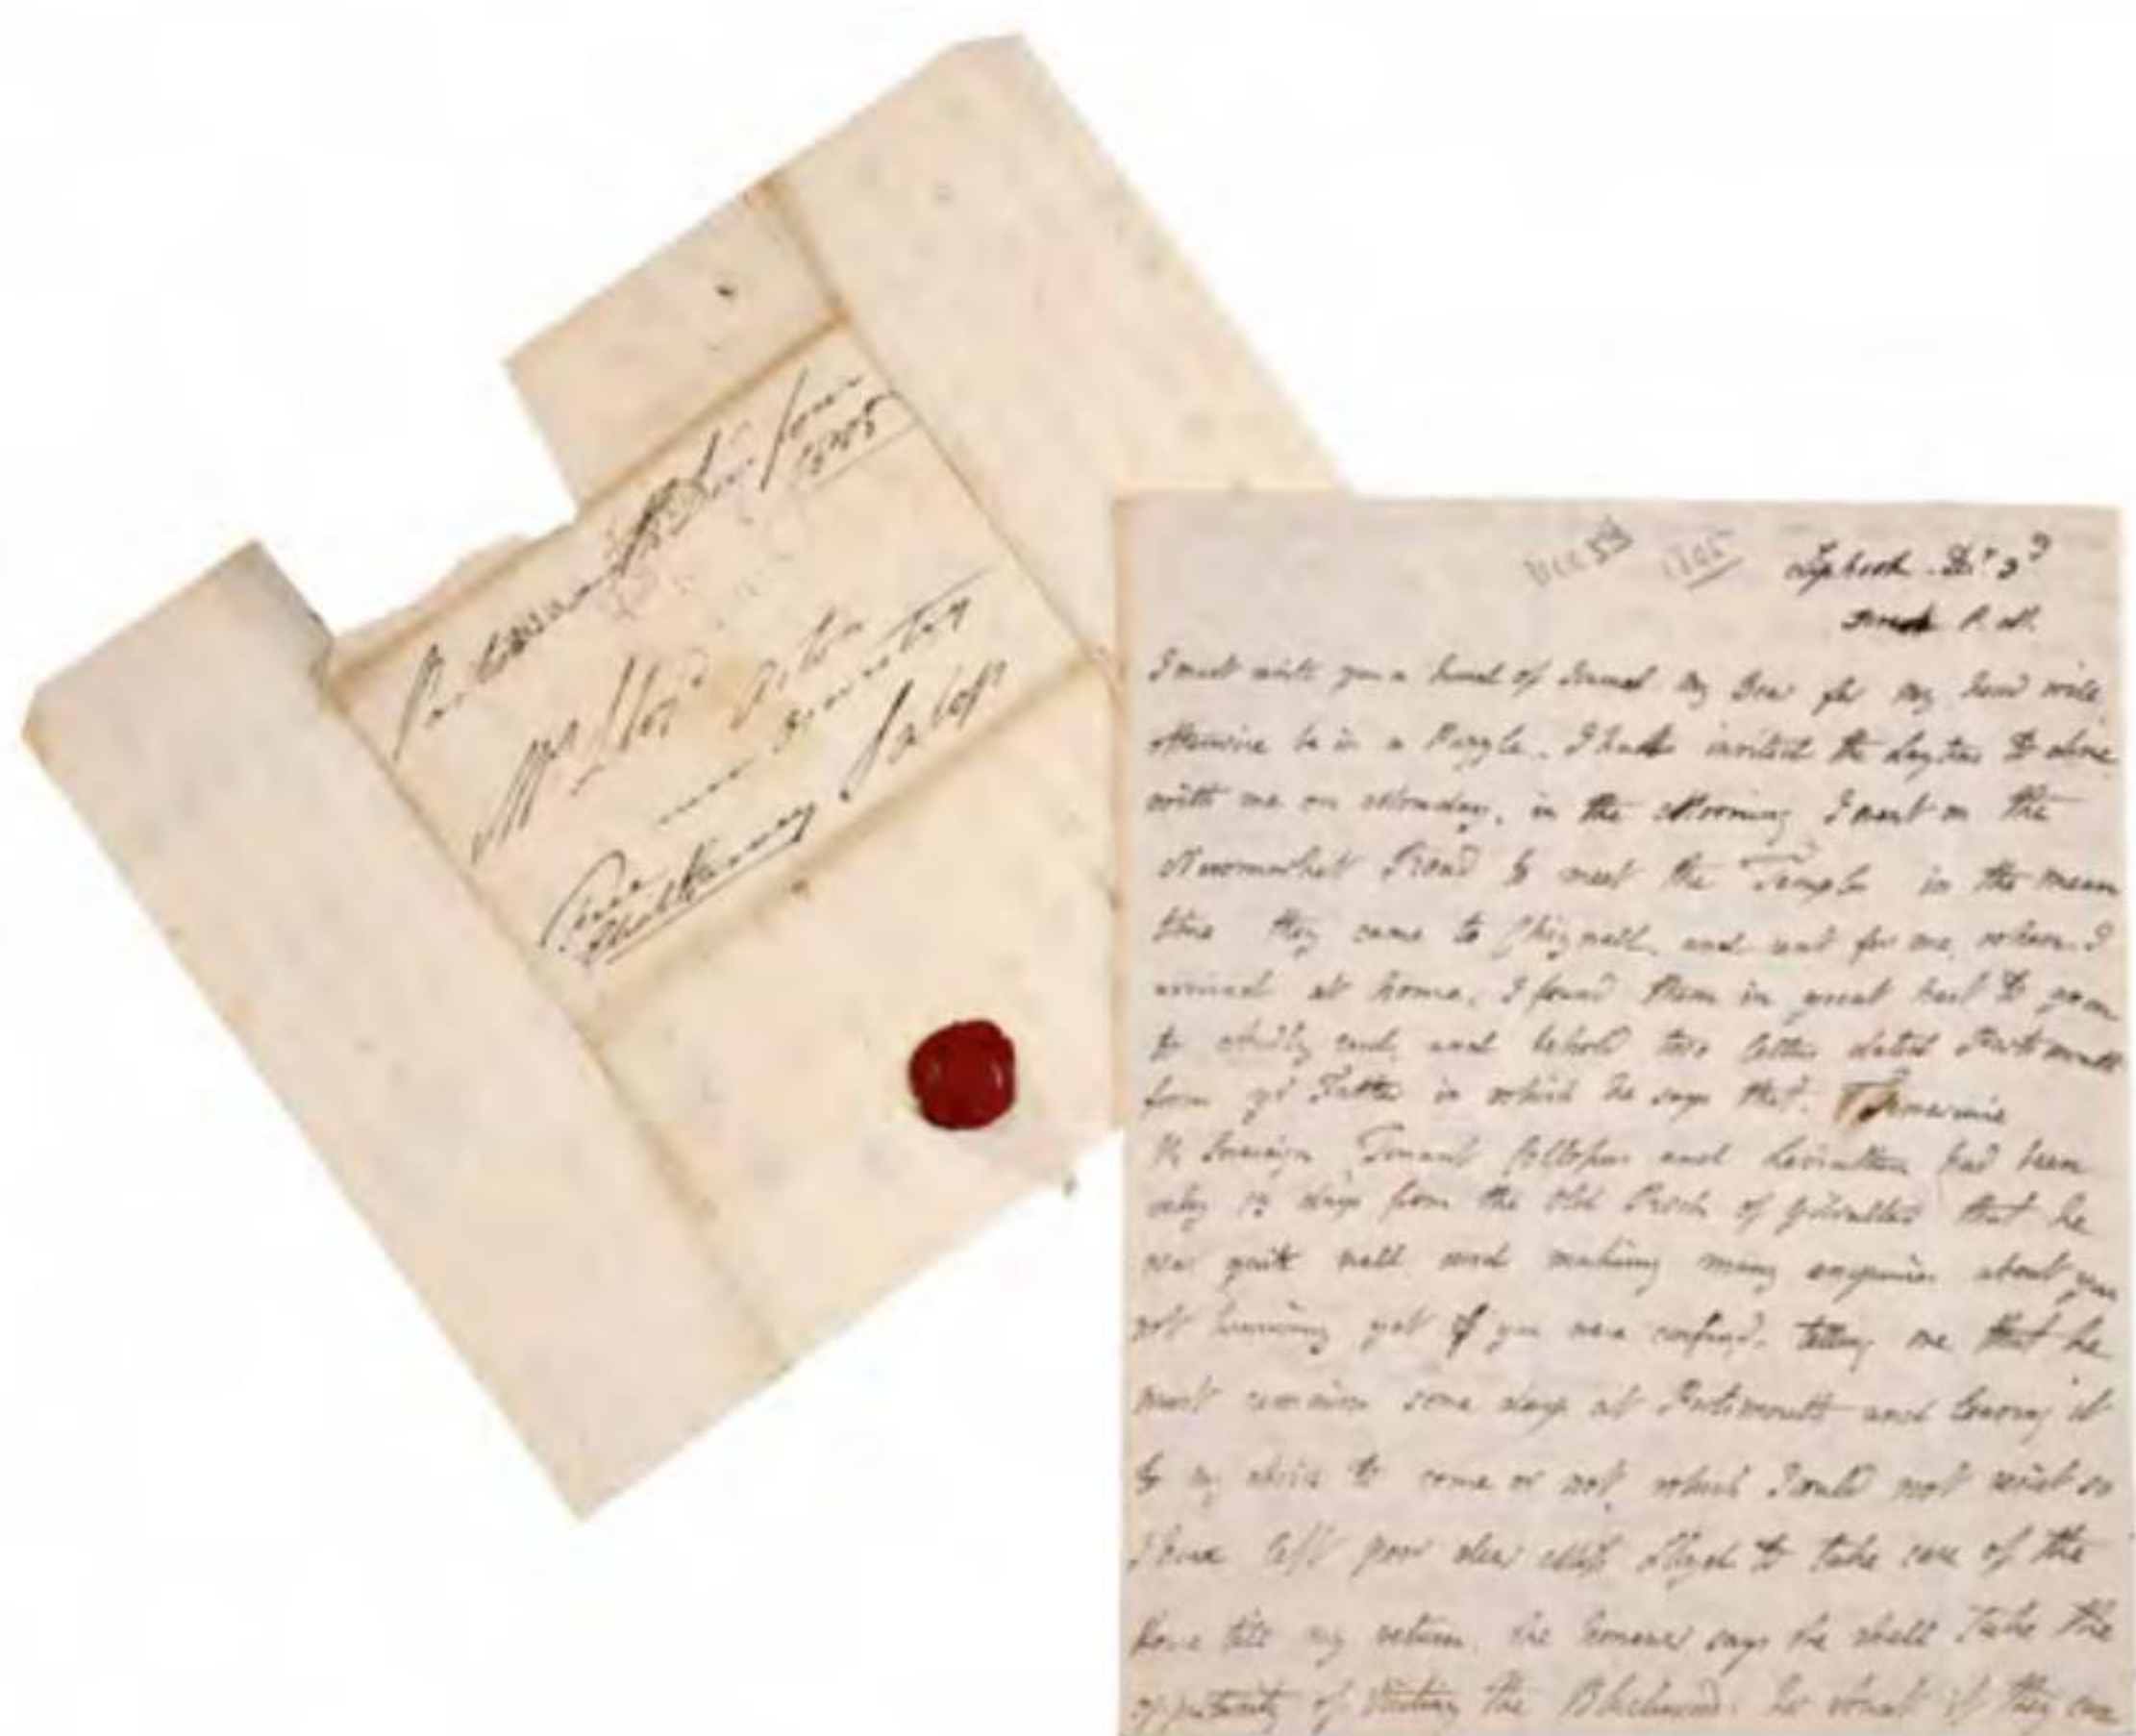 Portsmouth Decr four
1805
Mrs Lloyd Aston
near Oswestry
Salop
Decr 3d 1805
Liphook Decr 3d
P.M.
I must write you a kind of Journal my Dear for my head will
otherwise be in a Puzzle. I had invited the Laytons to dine
with me on Monday, in the Morning I went on the
Newmarket Road to meet the Temple in the mean
time they came to Chignall, and sent for me, when I
arrived at home, I found them in great hast to
to and behold two letters dated Portsmouth
from yr Father in which he says that Temeraire
Rl Sovereign Tonnant Collossus and Leviathan had been
only 13 days from the Old Rock of Gibralter that he
was quite well and making many enquiries about you
not knowing yet if you were confined. telling me that he
must remain some days at Portsmouth and leaving it
to my choice to come or not, which I could not resist so
I have left poor dear Miss Lloyd to take care of the
House till my return. she however says she shall take the
oppertunity of visiting the if they can